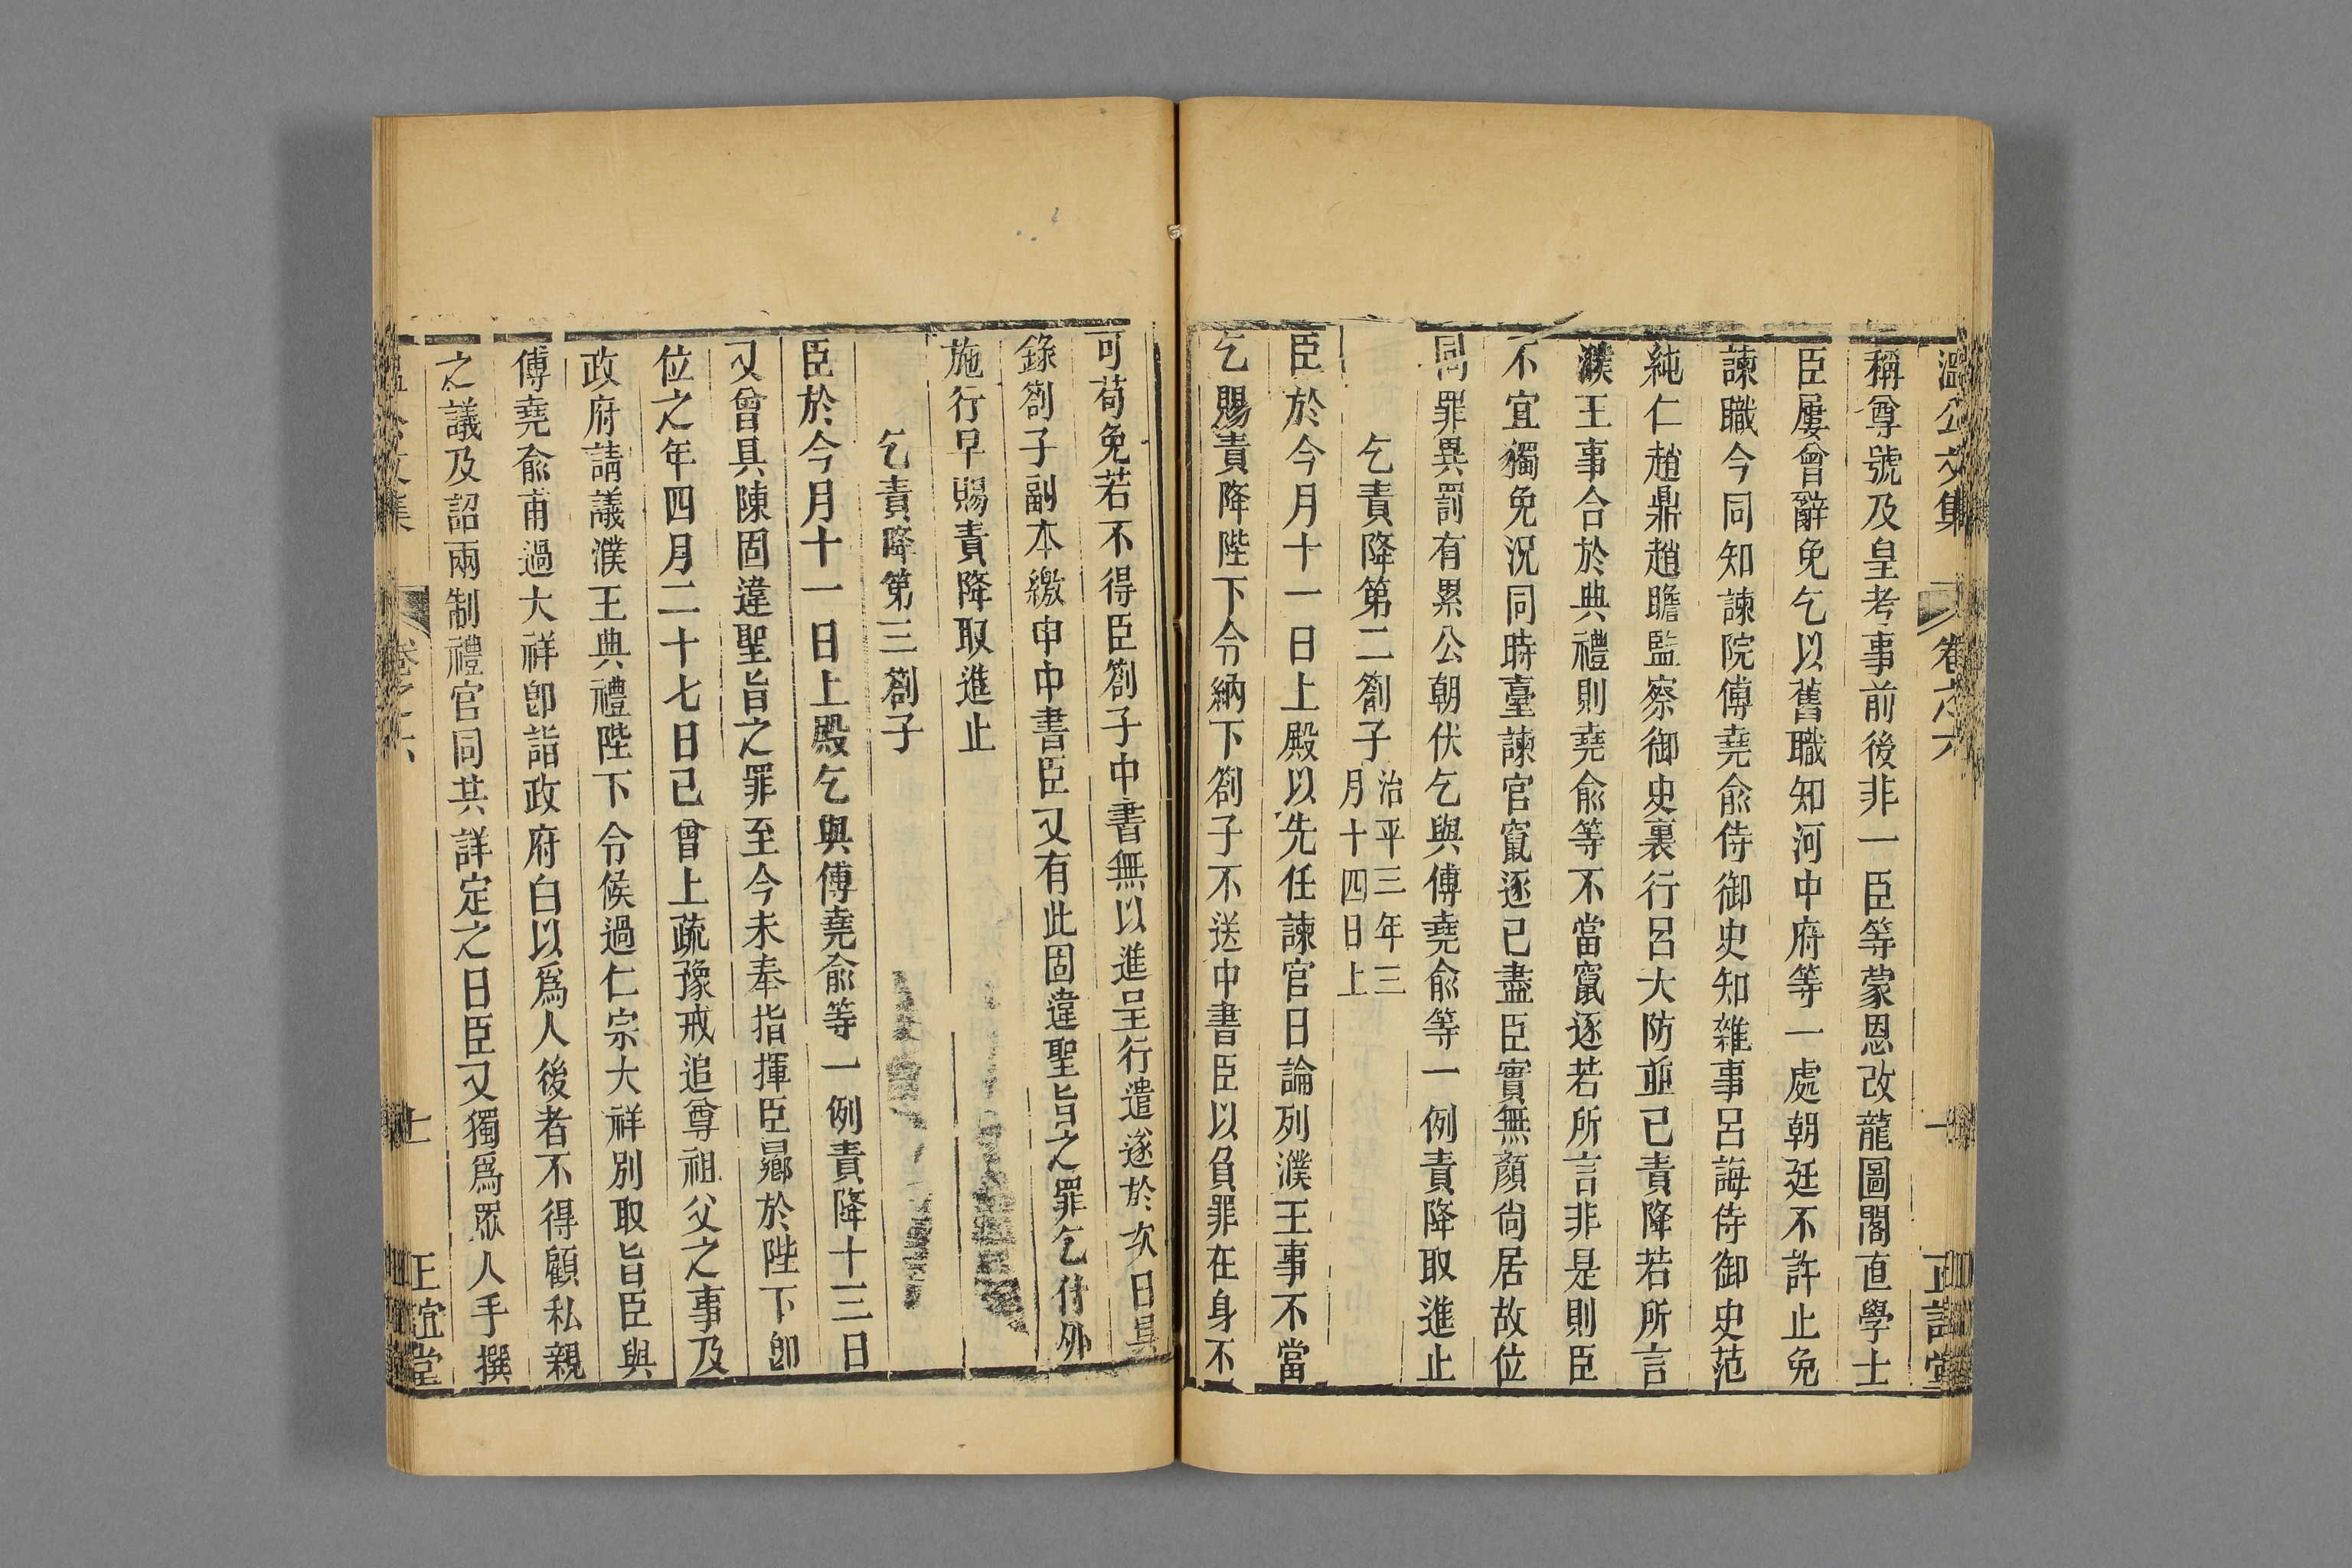 溫公文集 卷之六 正誼堂
稱尊號及皇考事前後非一臣等蒙恩改龍圖閣直學士
臣屢曾辭免乞以舊職知河中府等一處朝廷不許止免
諫職今同知諫院傅堯俞侍御史知雜事呂誨侍御史范
純仁趙鼎趙瞻監察御史裏行呂大防並已責降若所言
濮王事合於典禮則堯俞等不當竄逐若所言非是則臣
不宜獨免況同時臺諫官竄逐已盡臣實無顏尚居故位
同罪異罰有累公朝伏乞與傅堯俞等一例責降取進止
乞責降第二劄子治平三年三
月十四日上
臣於今月十一日上殿以先任諫官日論列濮王事不當
乞賜責降陛下令納下劄子不送中書臣以負罪在身不
可苟免若不得臣劄子中書無以進呈行遣遂於次日具
錄劄子副本繳申中書臣又有此固違聖旨之罪乞付外
施行早賜責降取進止
乞責降第三劄子
臣於今月十一日上殿乞與傅堯俞等一例責降十三日
又曾具陳固違聖旨之罪至今未奉指揮臣曏於陛下卽
位之年四月二十七日已曾上疏豫戒追尊祖父之事及
政府請議濮王典禮陛下令候過仁宗大祥別取旨臣與
傅堯俞甫過大祥卽詣政府白以爲人後者不得顧私親
之議及詔兩制禮官同共詳定之日臣又獨爲眾人手撰
溫公文集 卷之六 十 正誼堂